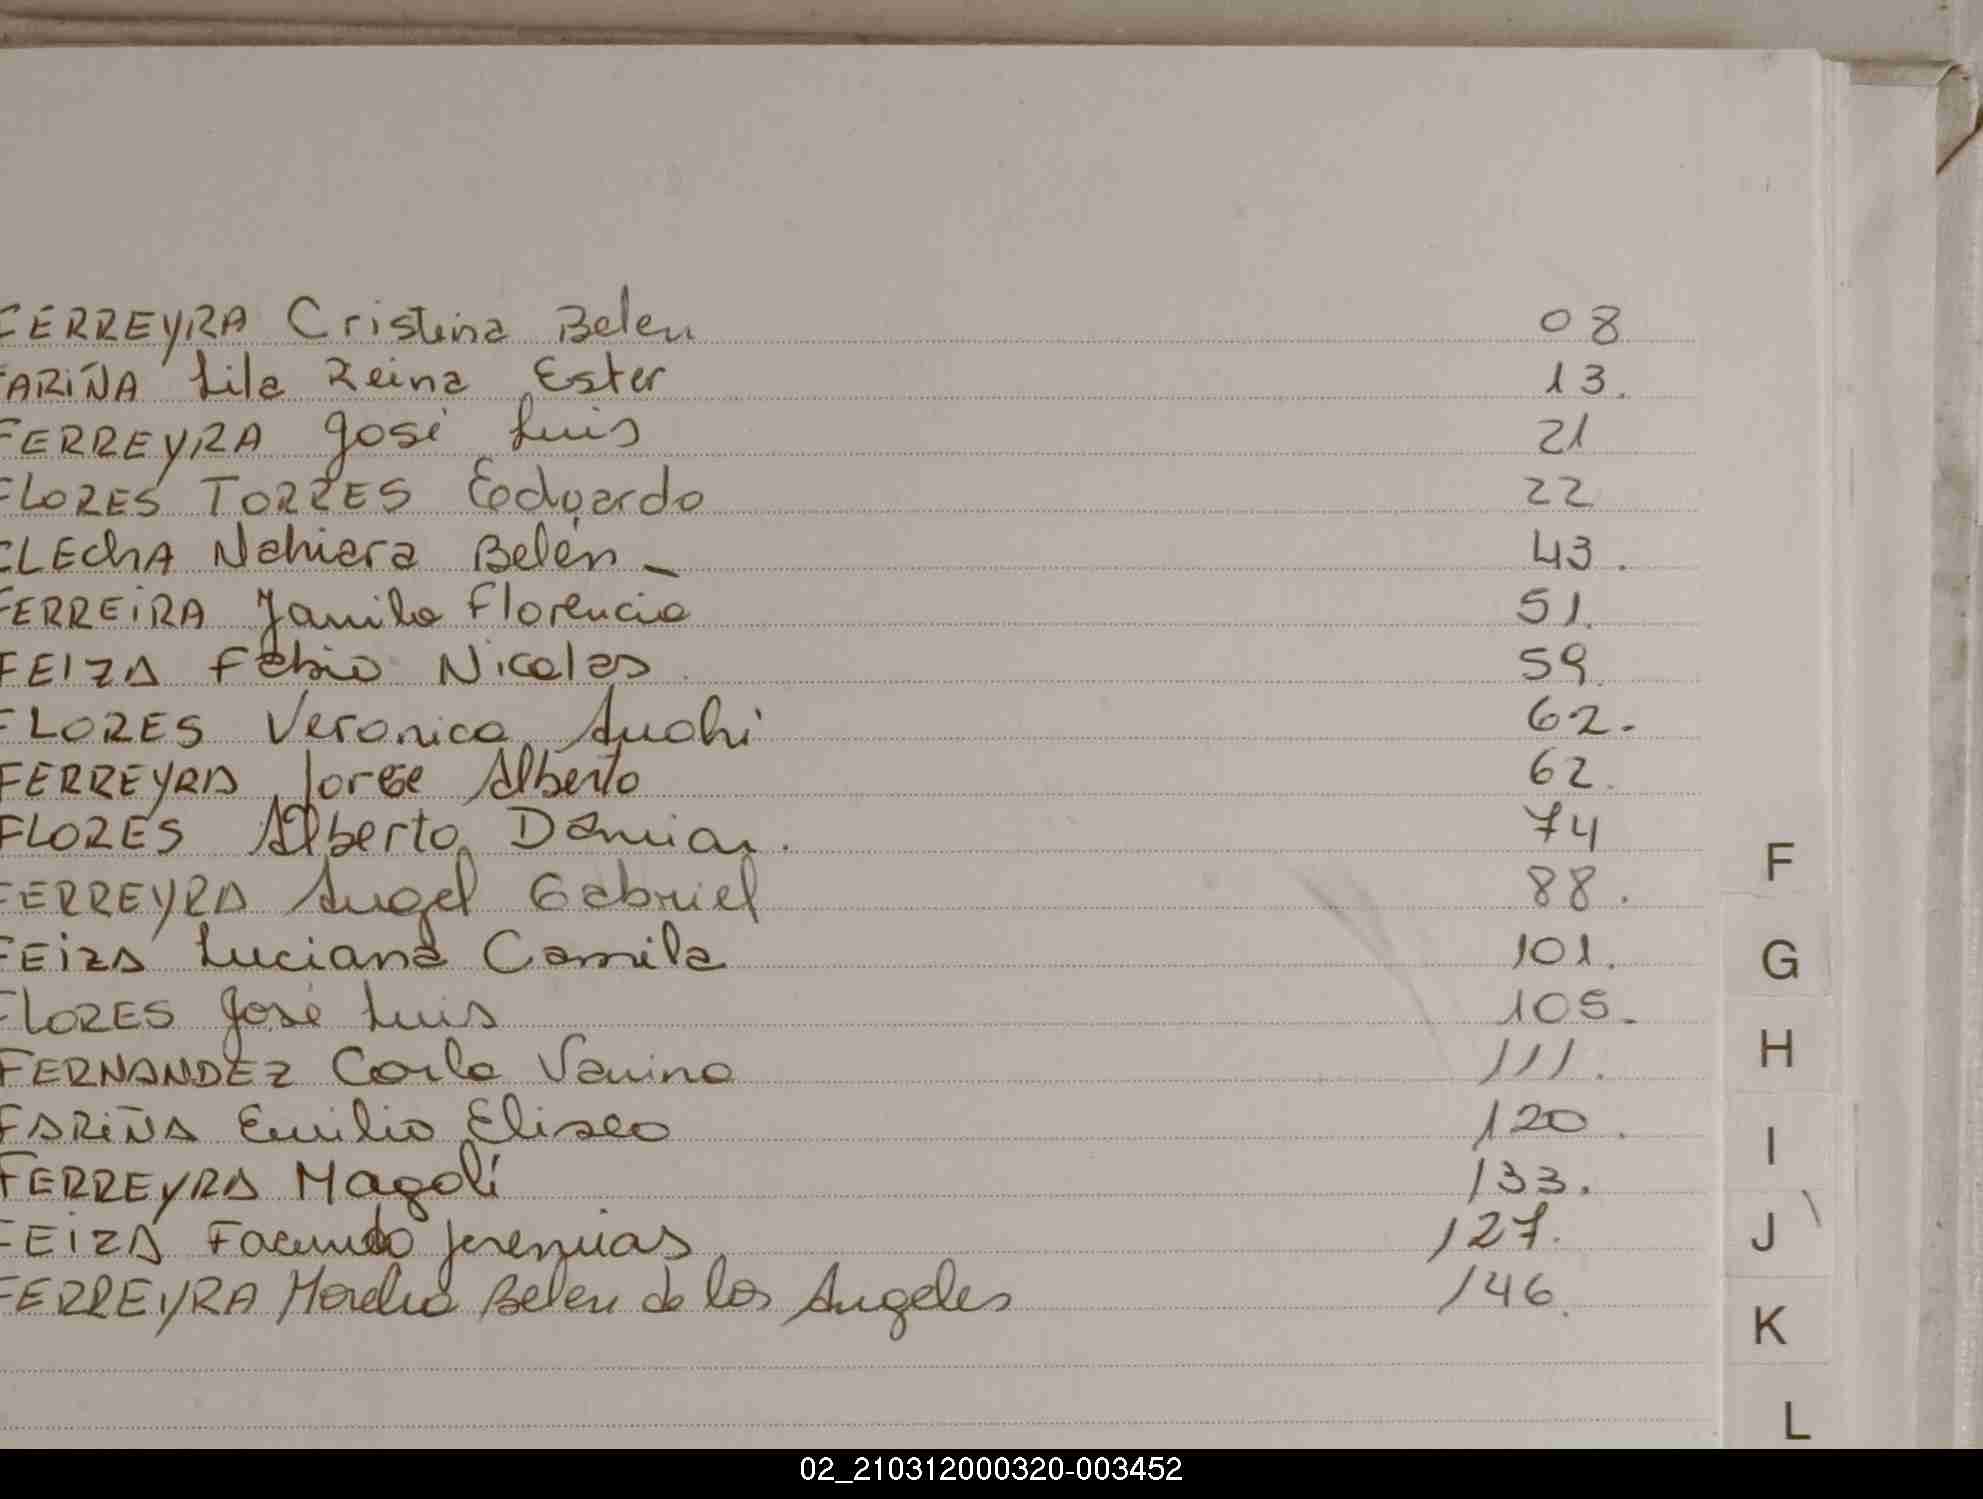 FERREYRA Cristina Belen 08
FARIÑA Lila Reina Ester 13.
FERREYRA José Luis 21
FLORES TORRES Eeduardo 22
FLEchA Nahiara Belén - 43.
FERREiRA Yamila Florencia 51.
FEIZA Fabio Nicolas 59.
FLORES Veronica Anahi 62.
FERREYRA Jorge Alberto 62.
FLORES Alberto Damian. 74
FERREYRA Angel Gabriel 88.
FEiZA Luciana Camila 101.
FLORES José Luis 105.
FERNANDEZ Carla Vanina 111.
FARiÑA Emilio Eliseo 120.
FERREYRA Magali 133.
FEiZA Facundo Jeremias 127.
FERREYRA Belen de los Angeles 146.
F
G
H
I
J
K
L
02_210312000320-003452